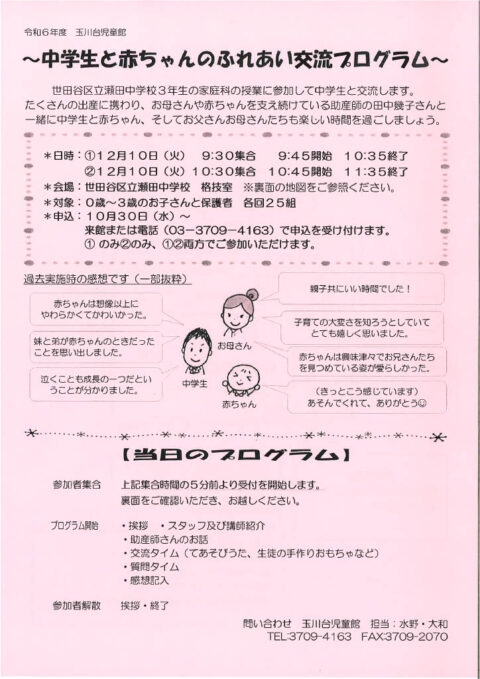 令和6年度　玉川台児童館
～中学生と赤ちゃんのふれあい交流プログラム～
世田谷区立瀬田中学校３年生の家庭科の授業に参加して中学生と交流します。
たくさんの出産に携わり、お母さんや赤ちゃんを支え続けている助産師の田中幾子さんと
一緒に中学生と赤ちゃん、そしてお父さんお母さんたちも楽しい時間を過ごしましょう。
＊日時：①１２月１０日（火）　９:３０集合　９:４５開始　１０:３５終了
②１２月１０日（火）１０:３０集合　１０:４５開始　１１:３５終了
＊会場：世田谷区立瀬田中学校　格技室　※裏面の地図をご参照ください。
＊対象：０歳～３歳のお子さんと保護者　各回２５組
＊申込：１０月３０日（水）～
来館または電話（０３－３７０９－４１６３）で申込を受け付けます。
① のみ②のみ、①②両方でご参加いただけます。
過去実施時の感想です（一部抜粋）
赤ちゃんは想像以上に
やわらかくてかわいかった。
妹と弟が赤ちゃんのときだった
ことを思い出しました。
泣くことも成長の一つだとい
うことが分かりました。
お母さん
中学生
赤ちゃん
親子共にいい時間でした！
子育ての大変さを知ろうとしていて
とても嬉しく思いました。
赤ちゃんは興味津々でお兄さんたち
を見つめている姿が愛らしかった。
（きっとこう感じています）
あそんでくれて、ありがとう☺
【当日のプログラム】
参加者集合　上記集合時間の５分前より受付を開始します。
裏面をご確認いただき、お越しください。
プログラム開始　・挨拶　・スタッフ及び講師紹介
・助産師さんのお話
・交流タイム（てあそびうた、生徒の手作りおもちゃなど）
・質問タイム
・感想記入
参加者解散　挨拶・終了
問い合わせ　玉川台児童館　担当：水野・大和
TEL:3709-4163　FAX:3709-2070